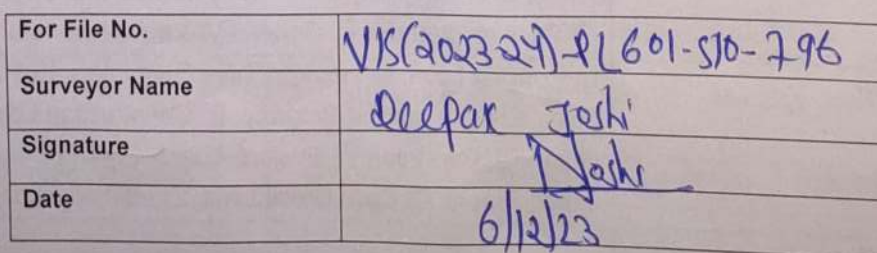 For File No. VIS(2023-24)-PL601-510-796
Surveyor Name Deepak Joshi
Signature Joshi
Date 6/12/23